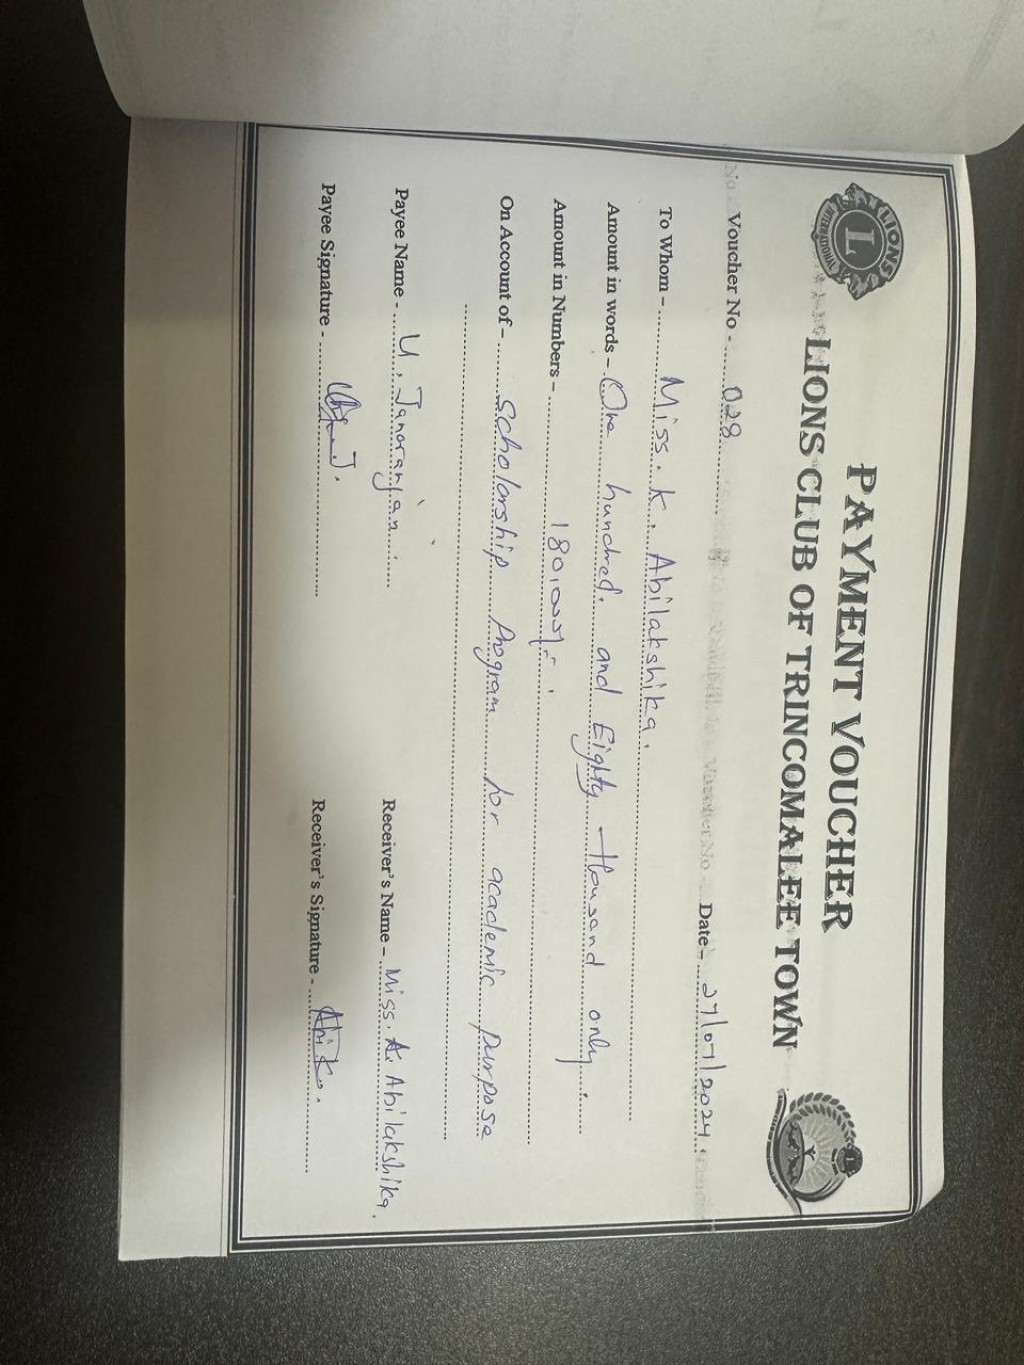 PAYMENT VOUCHER
LIONS CLUB OF TRINCOMALEE TOWN
LIONS
L
INTERNATIONAL
Voucher No - 028 Date - 27/07/2024
To Whom - Miss. K. Abilakshika.
Amount in words - One hundred and Eighty Thousand only.
Amount in Numbers - 180,000/-
On Account of - Scholarship Program for academic purpose
Payee Name - U. Janaranjan. Receiver's Name - Miss. K. Abilakshika.
Payee Signature - Receiver's Signature -